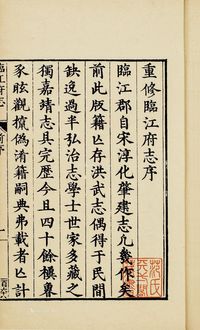 重修臨江府志序
臨江郡自宋淳化肇建志凢幾作矣
前此版籍亾存洪武志偶得于民間
缺逸過半弘治志學士世家多藏之
獨嘉靖志具完歴今且四十餘禩魯
豕眩觀
偽淆籍嗣典弗載者亾計
臨江府志
序